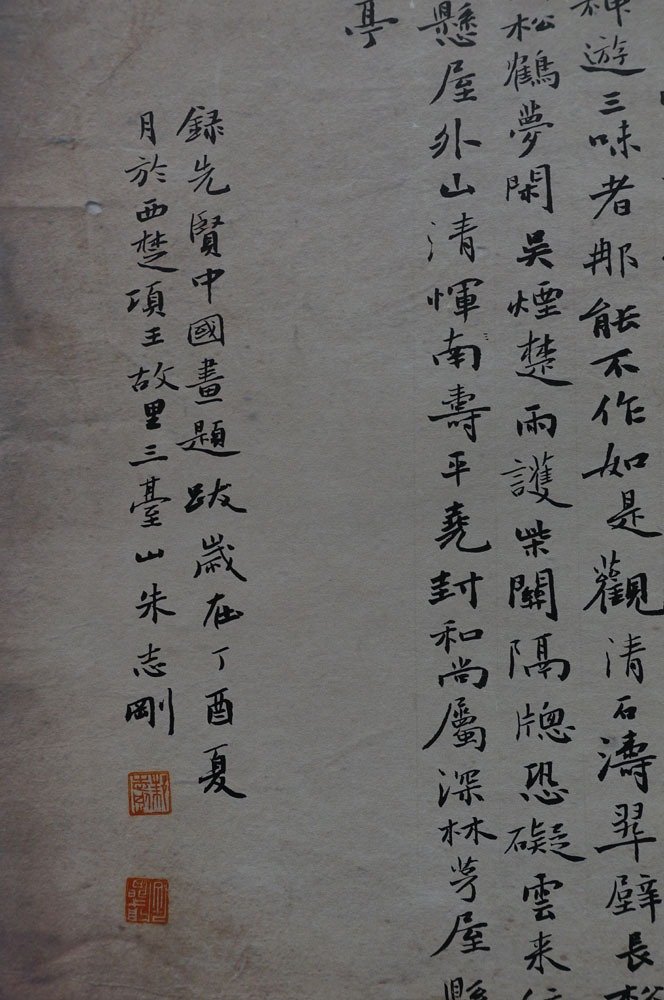 神遊三味者那能不作如是觀清石濤翠壁長松
松鶴夢閑吳煙楚雨護柴關隔牕恐礙雲来
懸屋外山清惲南壽平堯封和尚屬深林茅屋懸
亭
録先賢中國畫題跋歲在丁酉夏
月於西楚項王故里三臺山朱志剛